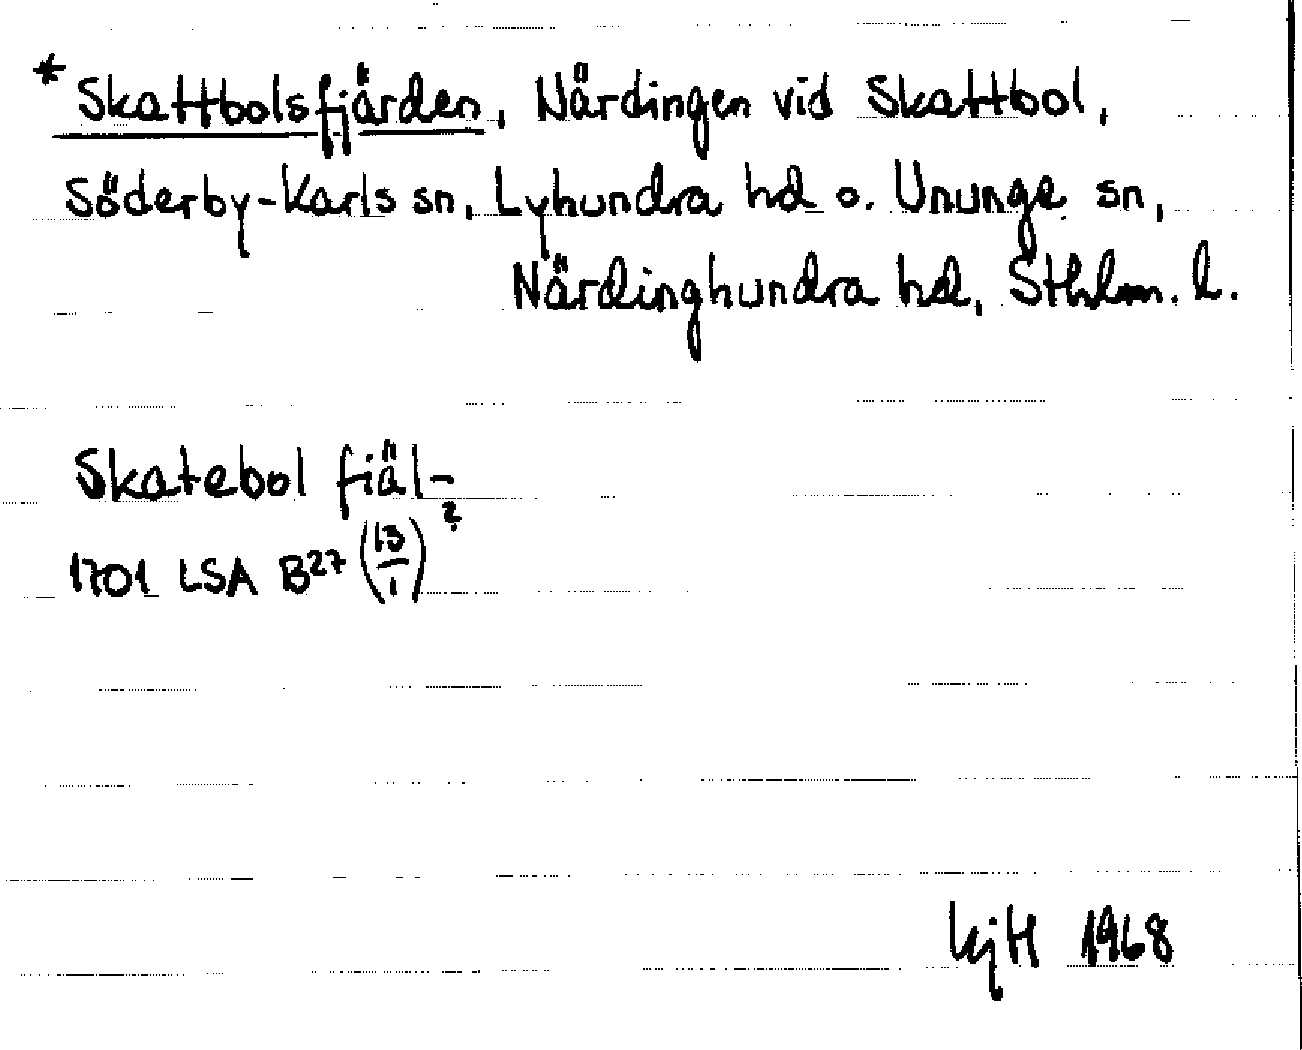 * Skattbolsfjärden, Närdingen vid Skattbol,
Söderby-Karls sn, Lyhundra hd o. Ununge sn,
Närdinghundra hd, Sthlm. l.
Skatebol fiäl-?
1701 LSA B27 (13/1)
kjH 1968